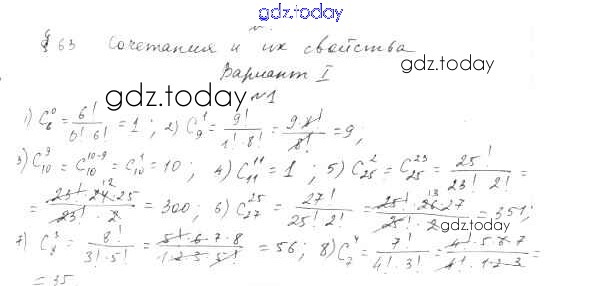 gdz.today
§ 63 Сочетания и их свойства
gdz.today
Вариант I
gdz.today
№1
1) C_6^0 = 6!/(0!·6!) = 1 ; 2) C_9^1 = 9!/(1!·8!) = 9·8!/8! = 9,
3) C_10^9 = C_10^{10-9} = C_10^1 = 10 ; 4) C_11^11 = 1 ; 5) C_25^2 = C_25^23 = 25!/(23! 2!) =
= 23!·24·25/(23!·2) 12 = 300; 6) C_27^25 = 27!/(25! 2!) = 25!·26·27/(25!·2) 13 = 351;
gdz.today
7) C_8^3 = 8!/(3!·5!) = 5!·6·7·8/(1·2·3·5!) = 56; 8) C_7^4 = 7!/(4!·3!) = 4!·5·6·7/(4!·1·2·3) =
= 35.